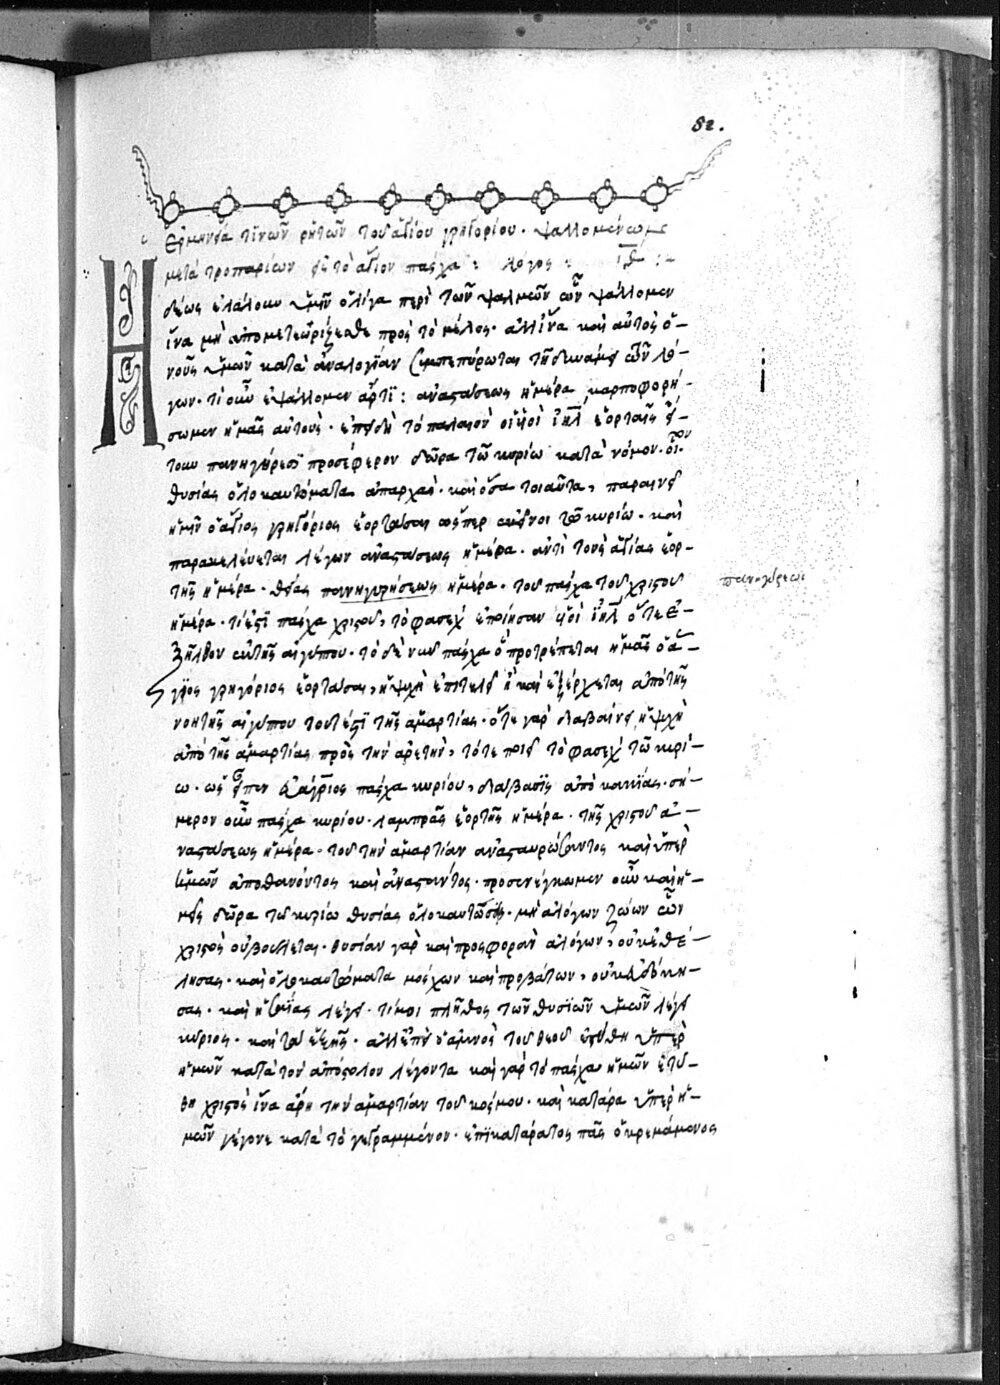 52.
Ἑρμηνεία τινῶν ῥητῶν τοῦ ἁγίου γρηγορίου. ψαλλομένων
μετὰ τροπαρίων εἰς τὸ ἅγιον πάσχα: λόγος:
Ἡδέως ἐλάλουν ὑμῖν ὀλίγα περὶ τῶν ψαλμῶν ὧν ψάλλομεν
ἵνα μὴ ἀπομετεωρίζεσθε πρὸς τὸ μέλος. ἀλλ' ἵνα καὶ αὐτὸς ὁ
νοῦς ὑμῶν κατὰ ἀναλογίαν συμπεπύρωται τῇ δυνάμει ὧν λέ-
γων. τί οὖν ἐψάλλομεν ἄρτι: ἀναστάσεως ἡμέρα, καρποφορή-
σωμεν ἡμᾶς αὐτούς. ἐπειδὴ τὸ παλαιὸν οἱ υἱοὶ ἰηλ ἑορταῖς ἐ-
τοῦν πανηγύρεσι προσέφερον δῶρα τῶ κυρίω κατὰ νόμον. οἷον
θυσίας ὁλοκαυτόματα ἀπαρχὰς. καὶ ὅσα τοιαῦτα, παραινεῖ
ἡμῖν ὁ ἅγιος γρηγόριος ἑορτάσαι ὥσπερ ἐκεῖνοι τῶ κυρίω. καὶ
παρακελεύεται λέγων ἀναστάσεως ἡμέρα. ἀντὶ τοῦ ἁγίας ἑορ-
τῆς ἡμέρα. θείας πανηγυρήσεως ἡμέρα. τοῦ πάσχα τοῦ χριστοῦ πανηγύρεως
ἡμέρα. τί ἐστι πάσχα χριστοῦ, τὸ φασὲχ ἐποίησαν υἱοὶ ἰηλ ὅτε ἐ-
ξῆλθον ἐκ τῆς αἰγύπτου. τὸ δὲ νῦν πάσχα ὃ προτρέπεται ἡμᾶς ὁ ἅ-
γιος γρηγόριος ἑορτάσαι, ἡ ψυχὴ ἐπιτελεῖ ἣ καὶ ἐξέρχεται ἀπὸ τῆς
νοητῆς αἰγύπτου τουτέστι τῆς ἁμαρτίας. ὅτε γὰρ διαβαίνει ἡ ψυχὴ
ἀπὸ τῆς ἁμαρτίας πρὸς τὴν ἀρετὴν, τότε ποιεῖ τὸ φασὲχ τῶ κυρί-
ω. ὡς εἶπεν εὐάγριος πάσχα κυρίου, διάβασις ἀπὸ κακίας. σή-
μερον οὖν πάσχα κυρίου. λαμπρᾶς ἑορτῆς ἡμέρα. τῆς χριστοῦ ἀ-
ναστάσεως ἡμέρα. τοῦ τὴν ἁμαρτίαν ἀνασταυρώσαντος καὶ ὑπὲρ
ἡμῶν ἀποθανόντος καὶ ἀναστάντος. προσενέγκωμεν οὖν καὶ ἡ-
μεῖς δῶρα τῶ κυρίω θυσίας ὁλοκαυτώσεις. μὴ ἀλόγων ζώων ὧν
χριστὸς οὐ βούλεται. θυσίαν γὰρ καὶ προσφορὰν ἀλόγων, οὐκ ἐθέ-
λησας. καὶ ὁλοκαυτώματα μόσχων καὶ προβάτων, οὐκ εὐδόκη-
σας. καὶ ἡσαΐας λέγει. τί μοι πλῆθος τῶν θυσιῶν ὑμῶν λέγει
κύριος. καὶ τὰ ἑξῆς. ἀλλ' ἐπεὶ ὁ ἀμνὸς τοῦ θεοῦ ἐτύθη ὑπὲρ
ἡμῶν κατὰ τὸν ἀπόστολον λέγοντα καὶ γὰρ τὸ πάσχα ἡμῶν ἐτύ-
θη χριστὸς ἵνα ἄρη τὴν ἁμαρτίαν τοῦ κόσμου. καὶ κατάρα ὑπὲρ ἡ-
μῶν γέγονε κατὰ τὸ γεγραμμένον. ἐπικατάρατος πᾶς ὁ κρεμάμενος